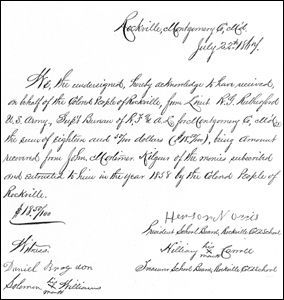 Rockville, Montgomery Co, Md.
July 22nd 1867.
We, the undersigned, hereby acknowledge to have received,
on behalf of the Colored People of Rockville, from Lieut R.G. Rutherford
U.S. Army, Supt Bureau of R.F & A.L. for Montgomery Co, Md.
the sum of eighteen and 50/100 dollars ($18.50/100), being amount
recovered from John Mortimer Kilgour of the monies subscribed
and entrusted to him in the year 1858 by the Colored People of
Rockville.
$18.50/100
Henson Norris
President School Board, Rockville Cold School
Witness,
William his X mark
Treasurer School Board, Rockville Cold School
Daniel
Solomon his X mark Williams